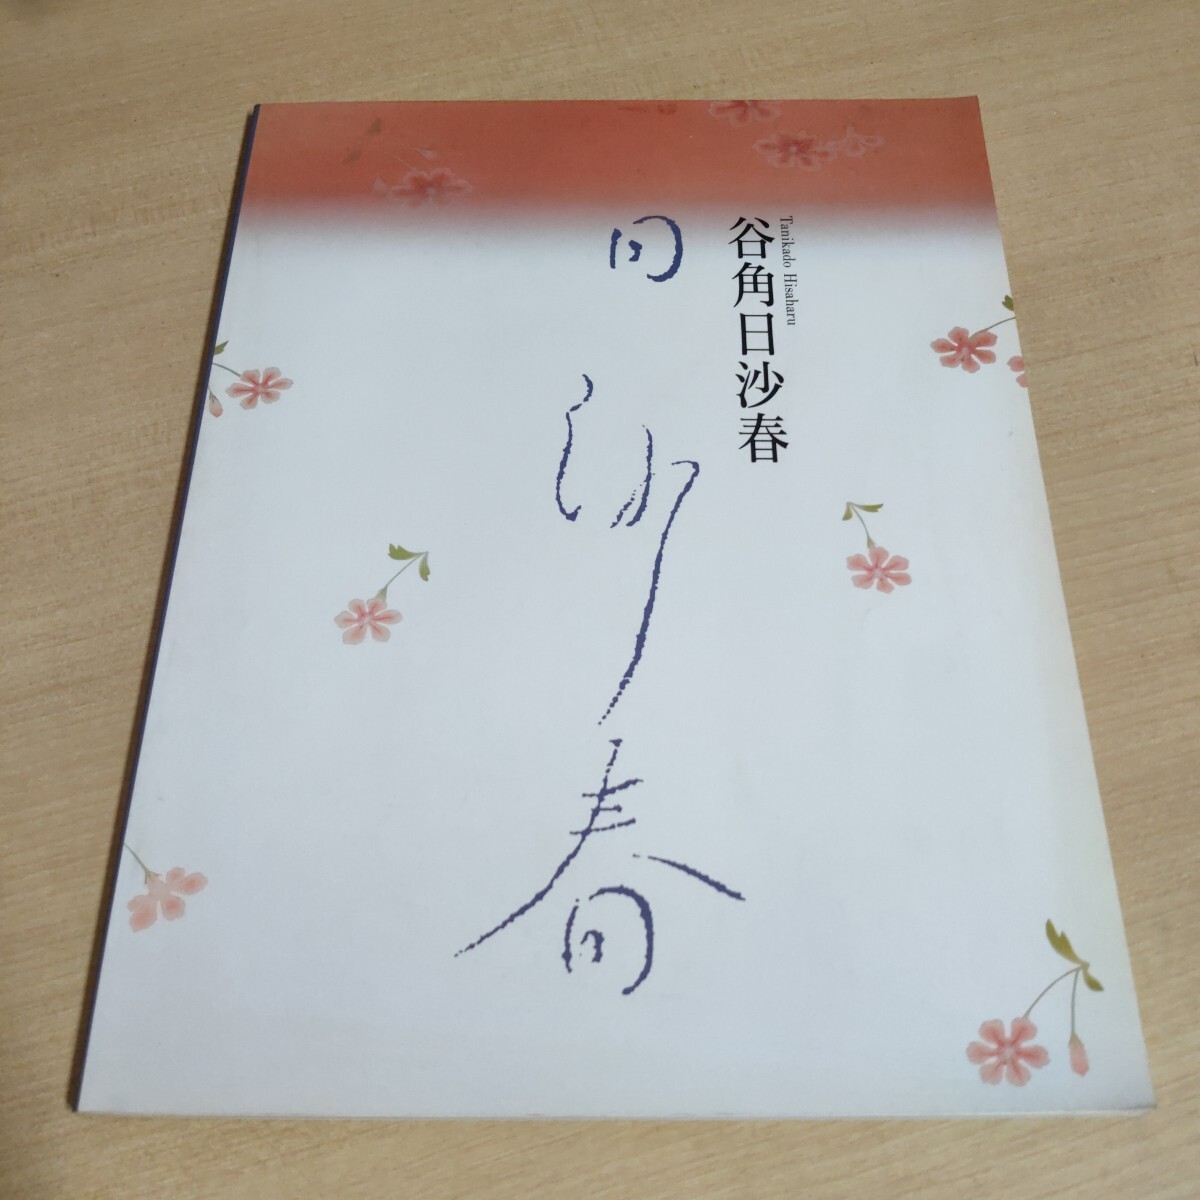 Tanikado Hisaharu
谷角日沙春
日沙春